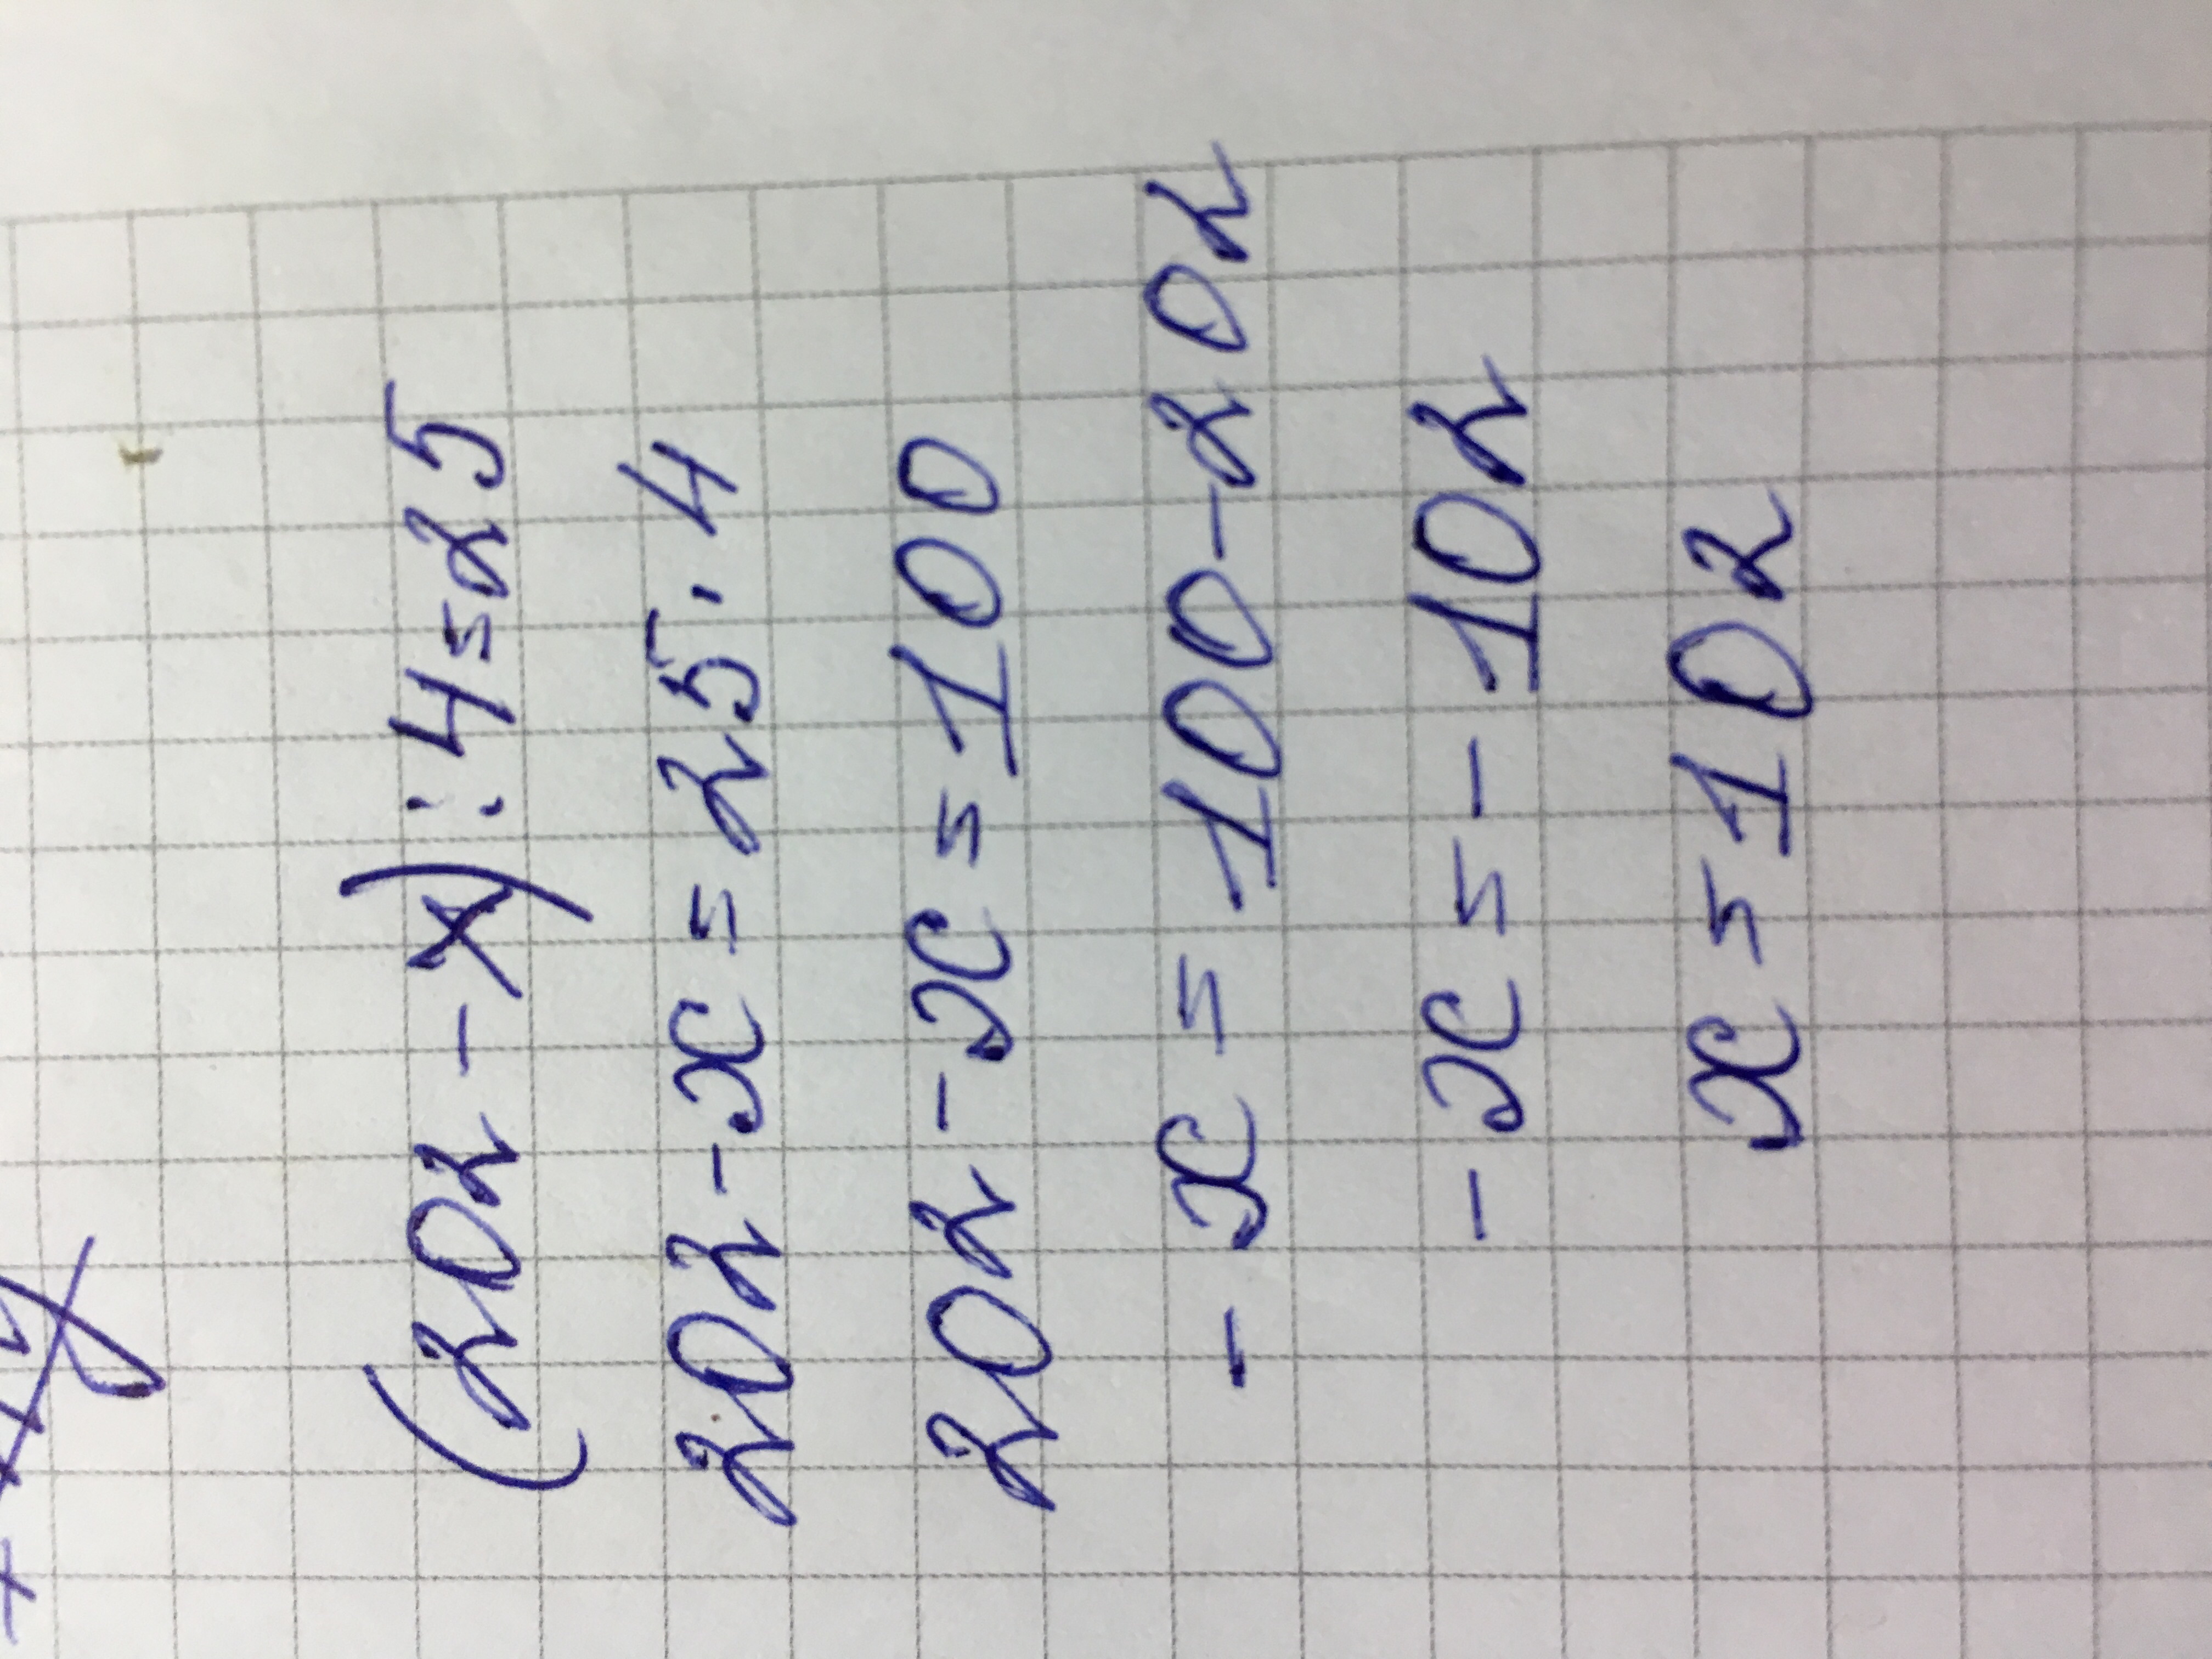 (202 - x) : 4 = 25
202 - x = 25 · 4
202 - x = 100
- x = 100 - 202
- x = - 102
x = 102